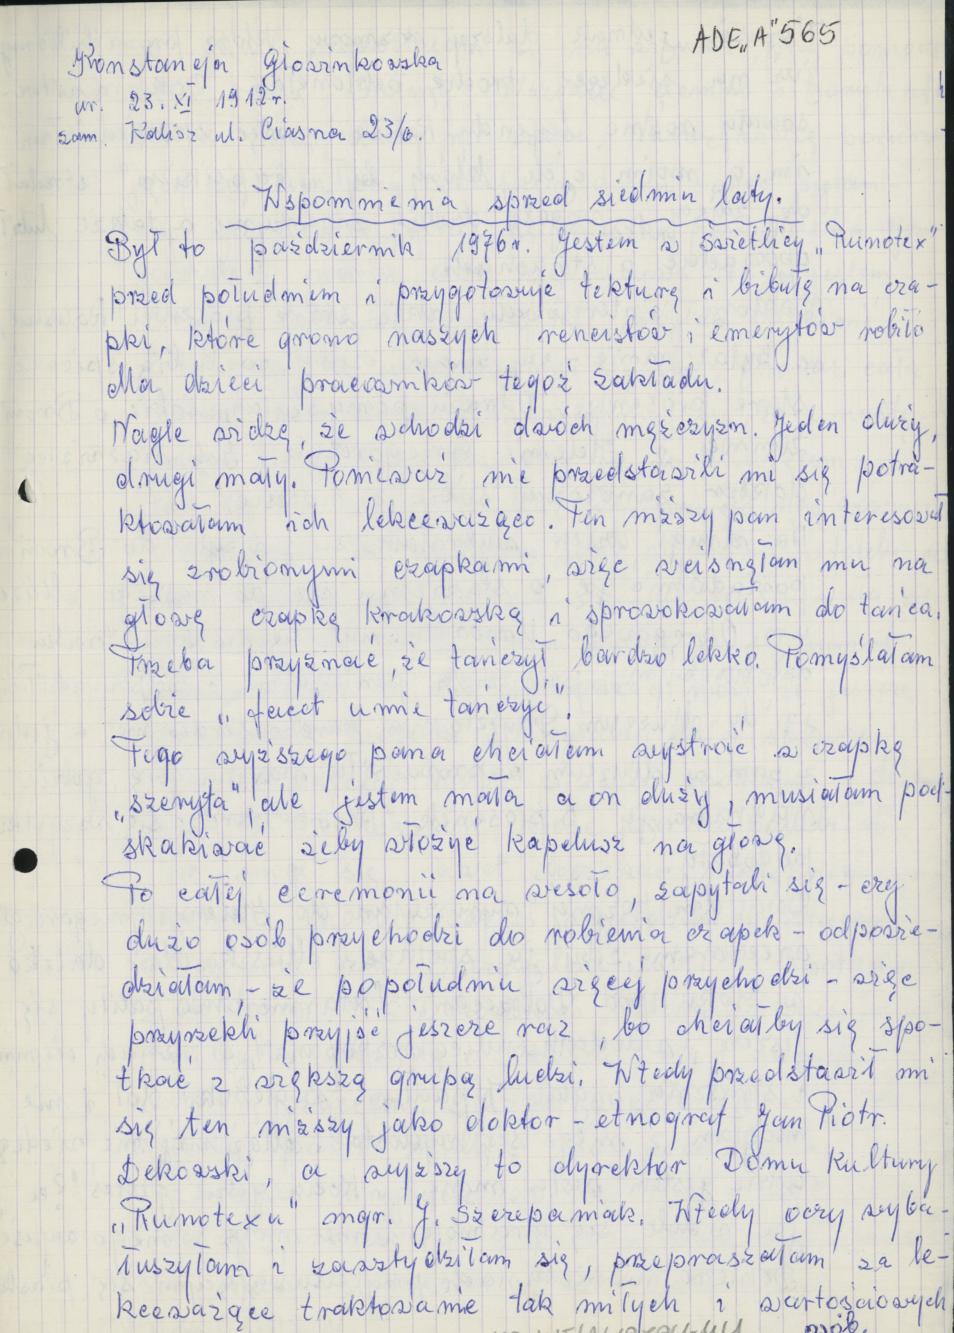 ADE „A" 565
Konstancja Głowinkowska
ur. 23. XI 1912 r.
zam. Kalisz ul. Ciasna 23/6.
Wspomnienia sprzed siedmiu laty.
Był to październik 1976 r. Jestem w świetlicy „Runotex"
przed południem i przygotowuję tekturę i bibułę na cza-
pki, które grono naszych rencistów i emerytów robiło
dla dzieci pracowników tegoż zakładu.
Nagle widzę, że wchodzi dwóch mężczyzn. Jeden duży,
drugi mały. Ponieważ nie przedstawili mi się potra-
ktowałam ich lekceważąco. Ten niższy pan interesował
się zrobionymi czapkami, więc wcisnęłam mu na
głowę czapkę krakowską i sprowokowałam do tańca.
Trzeba przyznać, że tańczył bardzo lekko. Pomyślałam
sobie „facet umie tańczyć".
Tego wyższego pana chciałam wystroić w czapkę
„szeryfa", ale jestem mała a on duży, musiałam pod-
skakiwać żeby włożyć kapelusz na głowę.
Po całej ceremonii na wesoło, zapytali się - czy
dużo osób przychodzi do robienia czapek - odpowie-
działam, - że po południu więcej przychodzi - więc
przyrzekli przyjść jeszcze raz, bo chciałby się spo-
tkać z większą grupą ludzi. Wtedy przedstawił mi
się ten niższy jako doktor - etnograf Jan Piotr.
Dekowski, a wyższy to dyrektor Domu Kultury
„Runotexu" mgr. J. Szczepaniak. Wtedy oczy wyba-
łuszyłam i zawstydziłam się, przepraszałam za le-
kceważące traktowanie tak miłych i wartościowych
osób.